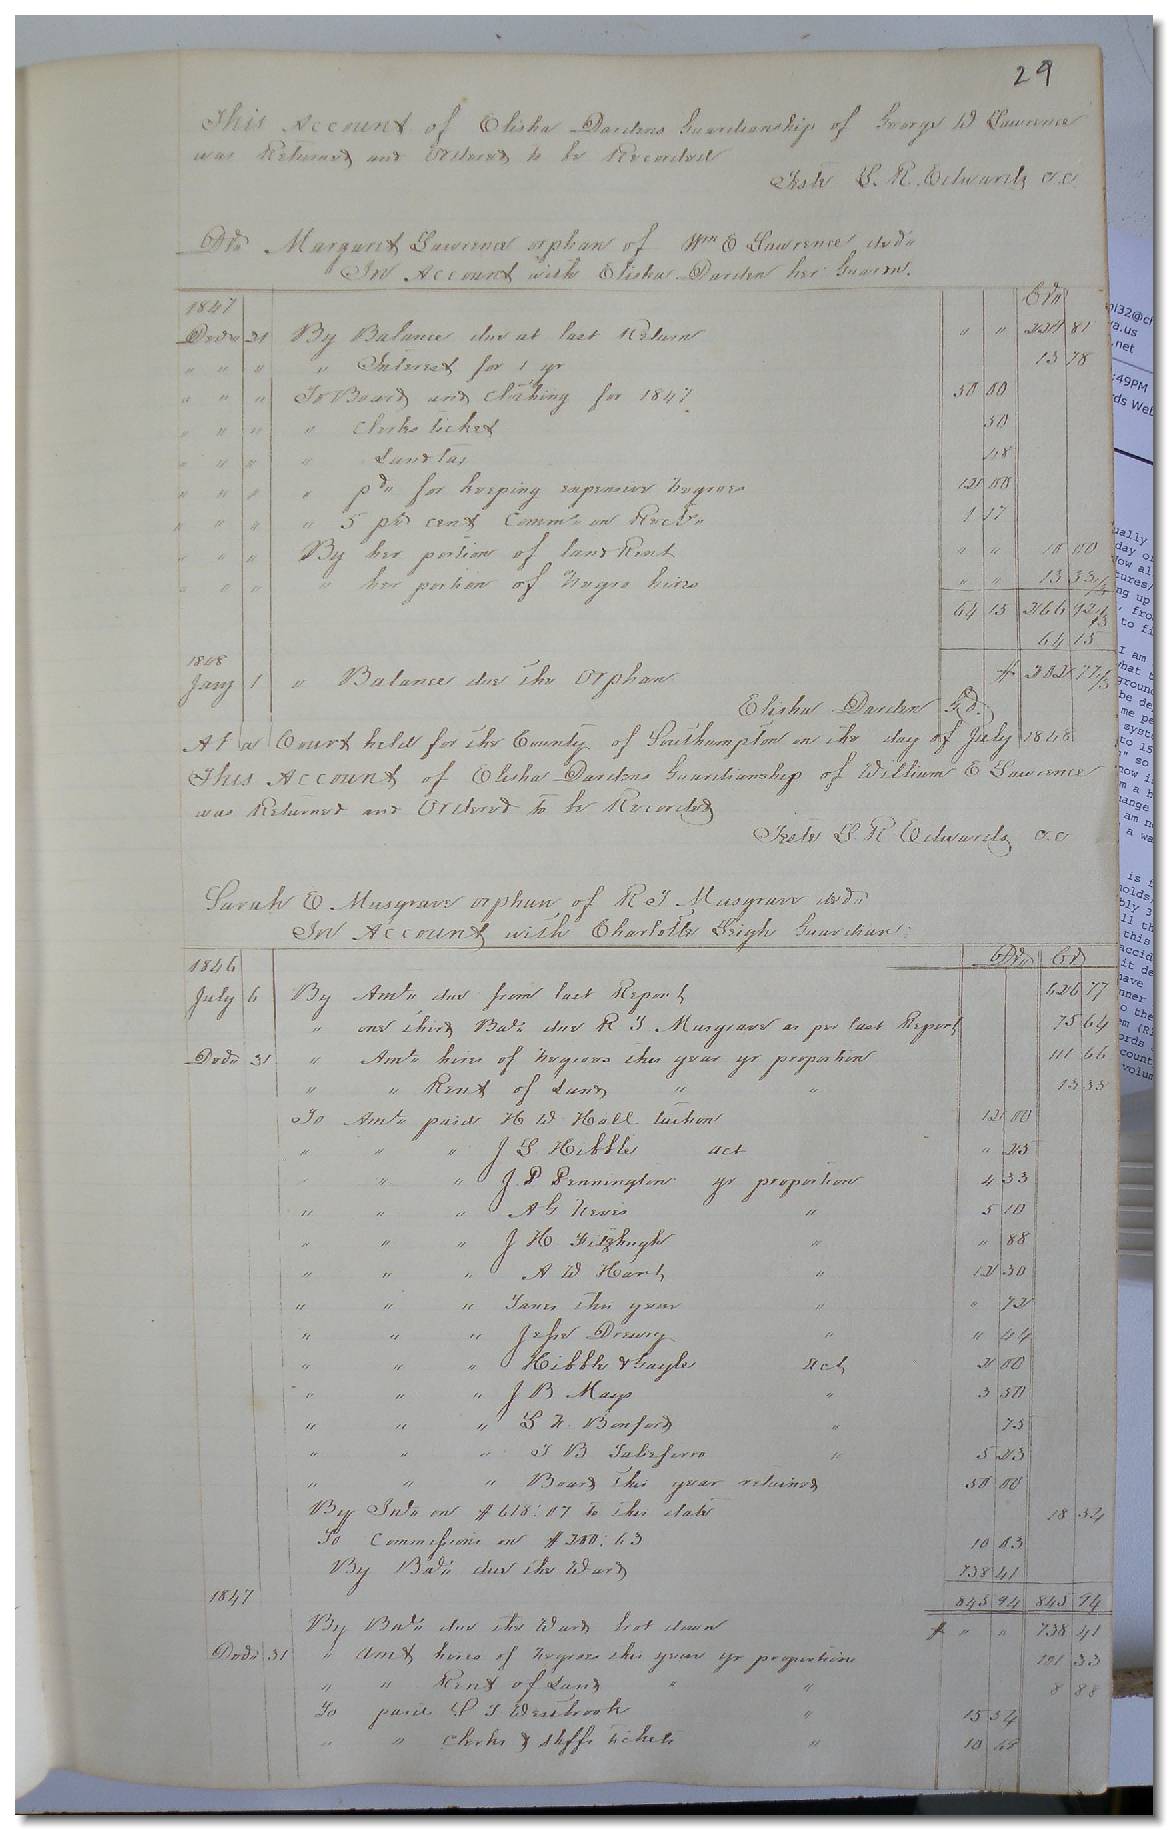 29
This Account of Elisha Dardens Guardianship of George W Lawrence
was Returned and Ordered to be Recorded
Teste L. R. Edwards c.c
Margaret Lawrence orphan of Wm E Lawrence decd
In Account with Elisha Darden her Guardn.
1847
Decr 31 By Balance due at last Return " " 81
" " " " Interest for 1 yr 13 78
" " " To Board and Clothing for 1847 50 00
" " " " Clerks ticket 50
" " " " Land tax 48
" " " " pd for keeping expensive Negroes 12 00
" " " " 5 pr cent Comms on Rects 1 17
" " " By her portion of land Rent " " 10 00
" " " " her portion of Negro hires " " 13 33 1/3
64 15 266 92 1/3
64 15
1848
Jany 1 " Balance due the Orphan $ 202 77 1/3
Elisha Darden Gd.
At a Court held for the County of Southampton on the day of July 1848
This Account of Elisha Dardens Guardianship of William E Lawrence
was Returned and Ordered to be Recorded
Teste L R Edwards c.c
Sarah E Musgrave orphan of R J Musgrave decd
In Account with Charlotte Guardian
1846 Dr Cr
July 6 By Amt due from last Report 626 77
" one third Bal. due R J Musgrave as per last Report 75 64
Decr 31 " Amt hires of Negroes this year yr proportion 111 66
" " Rent of Land " " 13 33
To Amt paid H W Hall tuition 12 00
" " " J S Kibbler act " 25
" " " J. P Pennington yr proportion 4 33
" " " A G " 5 10
" " " J H Fitzhugh " " 88
" " " A W Hart " 12 30
" " " Taxes this year " " 72
" " " John Drewry " " 44
" " " Kibble & Gayle act 2 00
" " " J B Mays " 3 50
" " " " 75
" " " " 5 25
" " " Board this year retained 50 00
By Int. on $ 618: 07 to this date 18 54
To Commissions on $ 200: 63 10 03
By Bal. due the Ward 738 41
1847 845 94 845 94
By Bal. due the Ward bot down $ " " 738 41
Decr 31 " Amt hires of Negroes this year yr proportion 101 33
" " Rent of Land " " 8 88
To paid Westbrook " 15 54
" " Clerks & Shffs tickets " 10